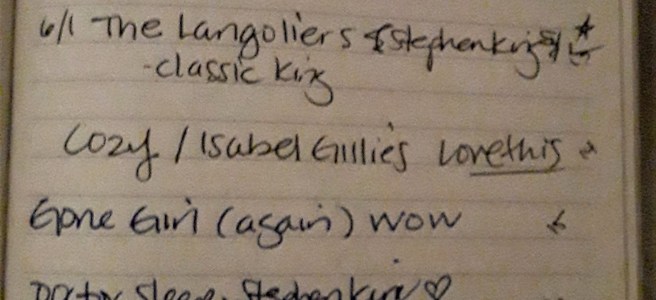 6/1 The Langoliers {Stephen King} ☆
-classic King
Cozy / Isabel Gillies Love this
Gone Girl (again) wow
Doctor Sleep, Stephen King ♡